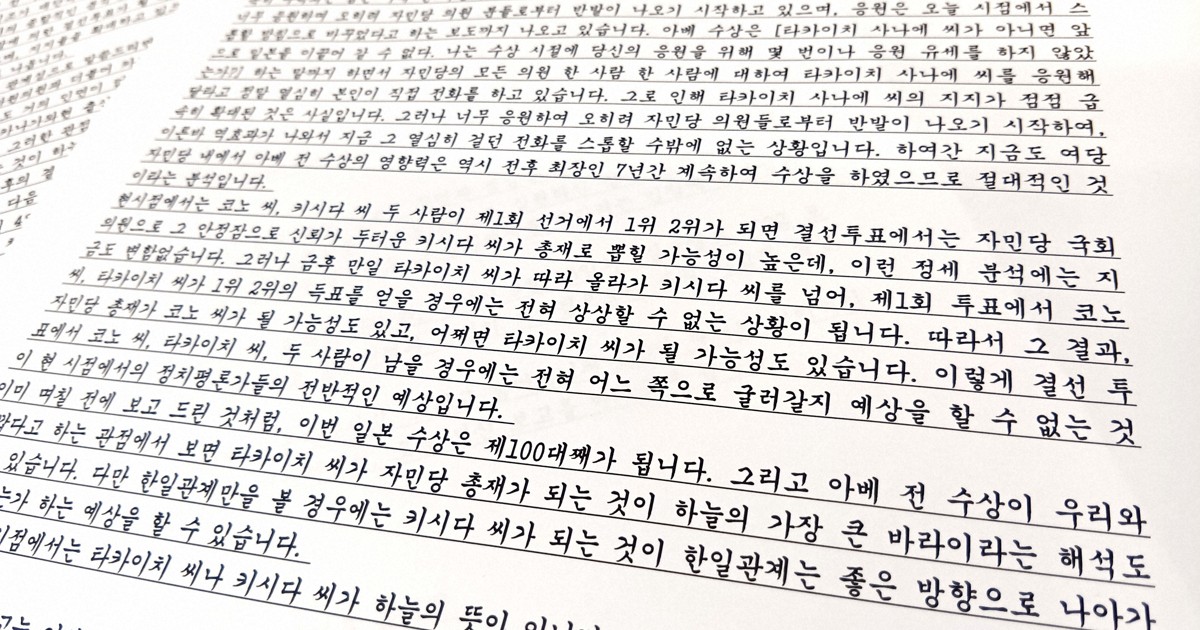 너무 응원하며 오히려 자민당 의원 분들로부터 반발이 나오기 시작하고 있으며, 응원은 오늘 시점에서 스
톱할 방침으로 바뀌었다고 하는 보도까지 나오고 있습니다. 아베 수상은 [타카이치 사나에 씨가 아니면 앞
으로 일본을 이끌어 갈 수 없다. 나는 수상 시절에 당신의 응원을 위해 몇 번이나 응원 유세를 하지 않았
는가?] 하는 말까지 하면서 자민당의 모든 의원 한 사람 한 사람에 대하여 타카이치 사나에 씨를 응원해
달라고 정말 열심히 본인이 직접 전화를 하고 있습니다. 그로 인해 타카이치 사나에 씨의 지지가 점점 급
속히 확대된 것은 사실입니다. 그러나 너무 응원하여 오히려 자민당 의원들로부터 반발이 나오기 시작하여,
이른바 역효과가 나와서 지금 그 열심히 걸던 전화를 스톱할 수밖에 없는 상황입니다. 하여간 지금도 여당
자민당 내에서 아베 전 수상의 영향력은 역시 전후 최장인 7년간 계속하여 수상을 하였으므로 절대적인 것
이라는 분석입니다.
현시점에서는 코노 씨, 키시다 씨 두 사람이 제1회 선거에서 1위 2위가 되면 결선투표에서는 자민당 국회
의원으로 그 안정잠으로 신뢰가 두터운 키시다 씨가 총재로 뽑힐 가능성이 높은데, 이런 정세 분석에는 지
금도 변함없습니다. 그러나 금후 만일 타카이치 씨가 따라 올라가 키시다 씨를 넘어, 제1회 투표에서 코노
씨, 타카이치 씨가 1위 2위의 득표를 얻을 경우에는 전혀 상상할 수 없는 상황이 됩니다. 따라서 그 결과,
자민당 총재가 코노 씨가 될 가능성도 있고, 어쩌면 타카이치 씨가 될 가능성도 있습니다. 이렇게 결선 투
표에서 코노 씨, 타카이치 씨, 두 사람이 남을 경우에는 전혀 어느 쪽으로 굴러갈지 예상을 할 수 없는 것
이 현 시점에서의 정치평론가들의 전반적인 예상입니다.
이미 며칠 전에 보고 드린 것처럼, 이번 일본 수상은 제100대째가 됩니다. 그리고 아베 전 수상이 우리와
깝다고 하는 관점에서 보면 타카이치 씨가 자민당 총재가 되는 것이 하늘의 가장 큰 바라이라는 해석도
있습니다. 다만 한일관계만을 볼 경우에는 키시다 씨가 되는 것이 한일관계는 좋은 방향으로 나아가
는가 하는 예상을 할 수 있습니다.
시점에서는 타카이치 씨나 키시다 씨가 하늘의 뜻이